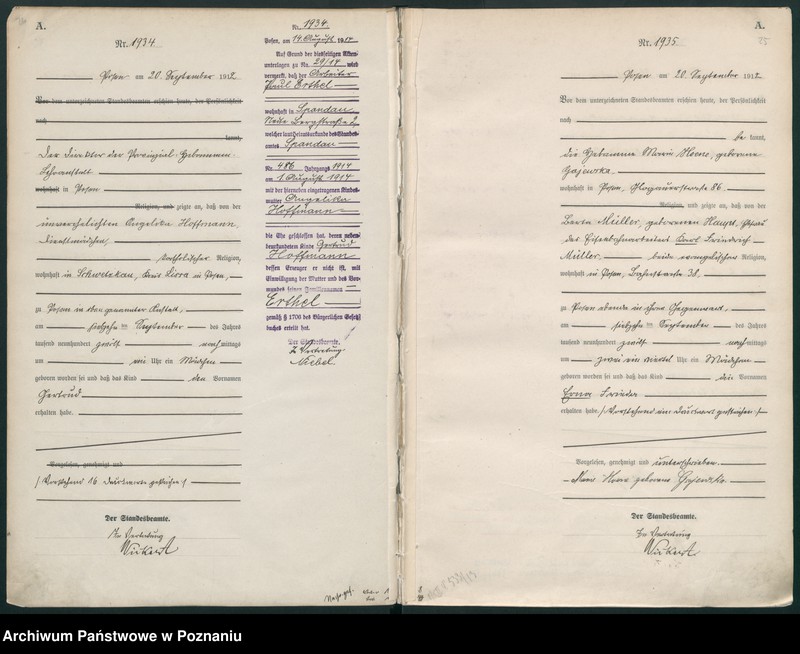 A.
Nr. 1934.
Posen, am 20. September 1912
Vor dem unterzeichneten Standesbeamten erschien heute, der Persönlichkeit
nach
kannt,
Der Direktor der Provinzial-Hebammen-
Lehranstalt
wohnhaft in Posen
Religion, und zeigte an, daß von der
unverehelichten Angelika Hoffmann,
Dienstmädchen,
katholischer Religion,
wohnhaft in Schwetzkau, Kreis Lissa in Posen,
zu Posen in oben genannter Anstalt,
am September des Jahres
tausend neunhundert zwölf nachmittags
um Uhr ein Mädchen
geboren worden sei und daß das Kind den Vornamen
Gertrud
erhalten habe.
Vorgelesen, genehmigt und
/ Vorstehend 16 Druckworte gestrichen /
Der Standesbeamte.
In Vertretung
Nr. 1934.
Posen, am 14. August 1914
Auf Grund der diesseitigen Akten-
unterlagen zu No. 29/14 wird
vermerkt, daß der Arbeiter
Paul Erthel
wohnhaft in Spandau
Neue Bergstraße 2,
welcher laut Heiratsurkunde des Standes-
amtes Spandau
Nr. 486 Jahrgangs 1914
am 1. August 1914
mit der hierneben eingetragenen Kindes-
mutter Angelika
Hoffmann
die Ehe geschlossen hat, deren neben-
beurkundeten Kinde Gertrud
Hoffmann
dessen Erzeuger er nicht ist, mit
Einwilligung der Mutter und des Vor-
mundes seinen Familiennamen
Erthel
gemäß § 1706 des Bürgerlichen Gesetz-
buches erteilt hat.
Der Standesbeamte.
In Vertretung
A.
Nr. 1935.
Posen am 20. September 1912
Vor dem unterzeichneten Standesbeamten erschien heute, der Persönlichkeit
nach
be kannt,
die Hebamme Marie geborene
Gajewska,
wohnhaft in Posen, 86.
Religion, und zeigte an, daß von der
Berta Müller, geborenen Ehefrau
des Eisenbahnarbeiters Karl Friedrich
Müller, beide evangelischer Religion,
wohnhaft in Posen, 38.
zu Posen abends in ihrer Gegenwart,
am September des Jahres
tausend neunhundert zwölf nachmittags
um zwei ein viertel Uhr ein Mädchen
geboren worden sei und daß das Kind die Vornamen
Erna Frieda
erhalten habe. / Vorstehend ein Druckwort gestrichen /
Vorgelesen, genehmigt und unterschrieben
geborene Gajewska.
Der Standesbeamte.
In Vertretung
Archiwum Państwowe w Poznaniu